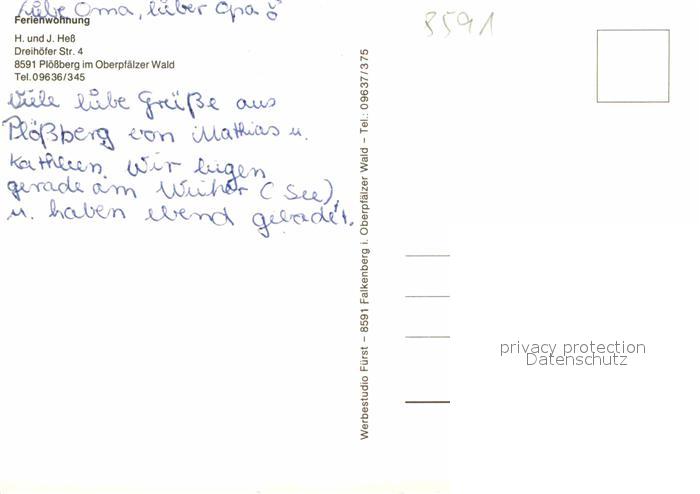 Liebe Oma, lieber Opa
8591
Ferienwohnung
H. und J. Heß
Dreihöfer Str. 4
8591 Plößberg im Oberpfälzer Wald
Tel. 09636/345
Viele liebe Grüße aus
Plößberg von Mathias u.
Kathleen. Wir liegen
gerade am Weiher (See),
u. haben
Werbestudio Fürst – 8591 Falkenberg i. Oberpfälzer Wald – Tel.: 09637/375
privacy protection
Datenschutz